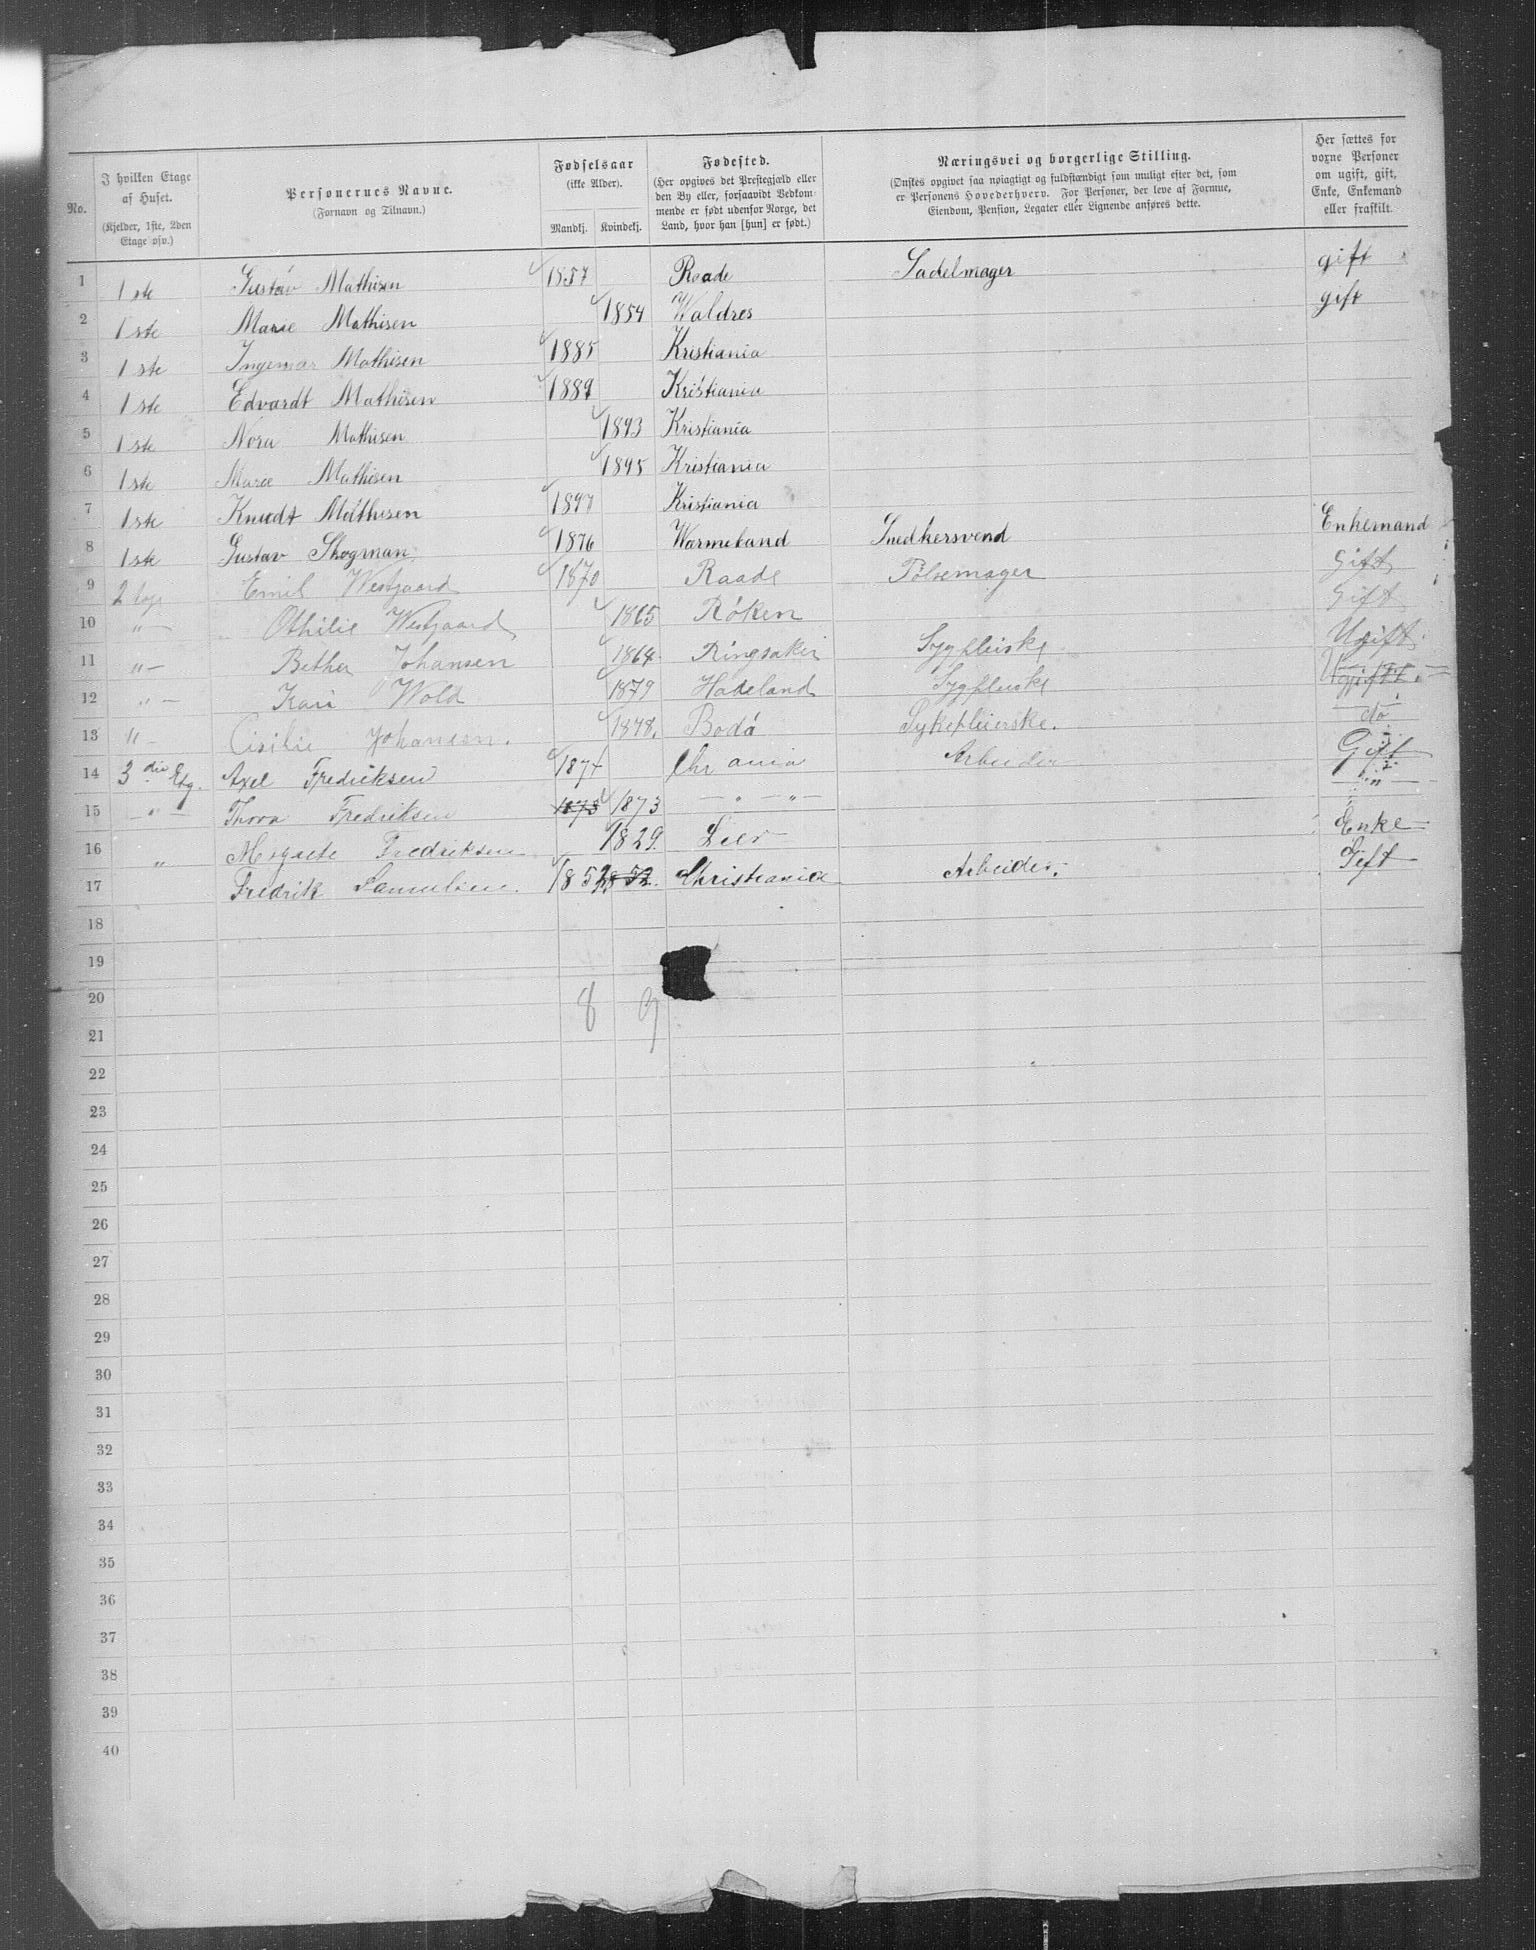 No.
I hvilken Etage af Huset. (Kjelder, 1ste, 2den Etage osv.)
Personernes Navne. (Fornavn og Tilnavn.)
Fødselsaar (ikke Alder). Mandkj. Kvindekj.
Fødested. (Her opgives det Prestegjæld eller den By eller, forsaavidt Vedkommende er født udenfor Norge, det Land, hvor han [hun] er født.)
Næringsvei og borgerlige Stilling. (Ønskes opgivet saa nøiagtigt og fuldstændigt som muligt efter det, som er Personens Hovederhverv. For Personer, der leve af Formue, Eiendom, Pension, Legater eller Lignende anføres dette.
Her sættes for voxne Personer om ugift, gift, Enke, Enkemand eller fraskilt.
1 1ste Gustav Mathisen 1857 Raade Sadelmager gift
2 1ste Marie Mathisen 1854 Waldres gift
3 1ste Ingemar Mathisen 1885 Kristiania
4 1ste Edvardt Mathisen 1889 Kristiania
5 1ste Nora Mathisen 1893 Kristiania
6 1ste Marie Mathisen 1895 Kristiania
7 1ste Knudt Mathisen 1897 Kristiania
8 1ste Gustav Skogman 1876 Warmeland Snedkersvend Enkemand
9 2 Emil Westgaard 1870 Raade Pølsemager Gift
10 "— Othilie Westgaard 1865 Røken Gift
11 "— Bethea Johansen 1864 Ringsaker Sygpleiske Ugift
12 "— Kari Wold 1879 Hadeland Sygpleiske Ugift
13 "— Cisilie Johansen. 1878. Bodø Sykepleierske. do
14 3die Etg. Axel Fredriksen 1874 Chrania Arbeider Gift
15 —"— Thora Fredriksen 1873 1873 —"—"— "
16 " Mergrete Fredriksen 1829. Lier Enke
17 Fredrik Samuelsen. 1852 1852. Christiania Arbeider. Gift
18
19
20
8 9
21
22
23
24
25
26
27
28
29
30
31
32
33
34
35
36
37
38
39
40